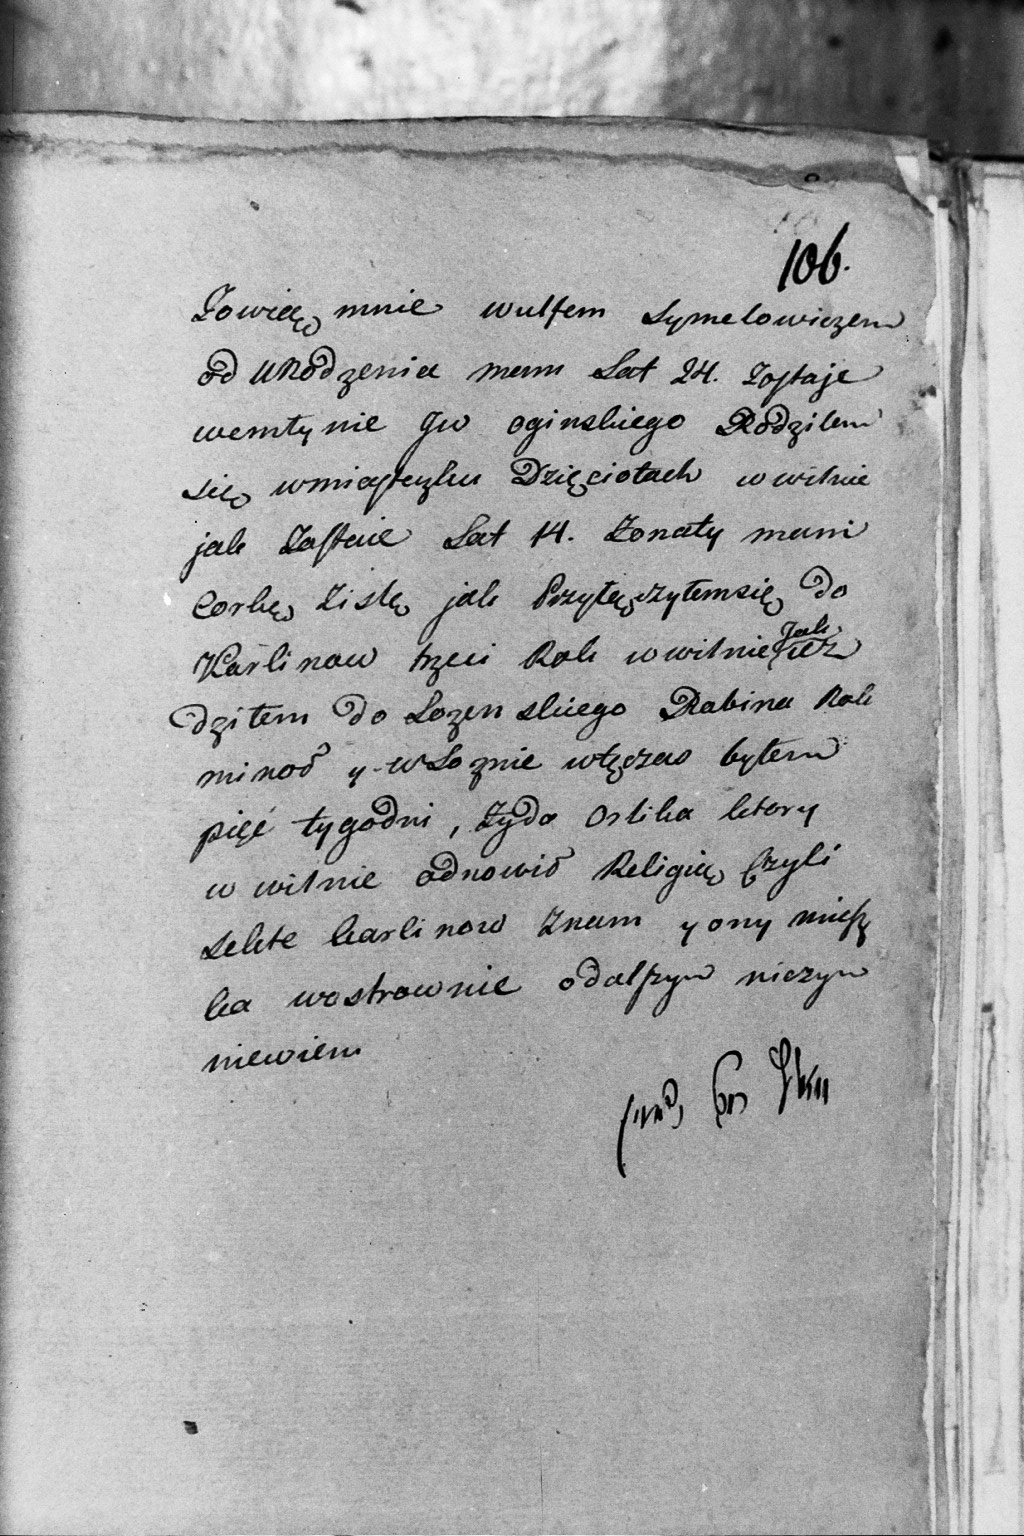 106.
Zowięę mnie wulfem Symelowiczem
od uRodzenia mam Lat 24. zostaje
wemłynie JW oginskiego Rodzilem
się wmiasteczku Dzięciołach w wilnie
jak Zostaie Lat 14. Żonaty mam
Corkę Zislę jak Przyłęczyłemsię do
Karlinow trzeci Rok w wilnie Jak iez
dziłem do Lozen skiego Rabina Rok
minoł y w Loznie wtęczas byłem
pięć tygodni, Żyda Orlika ktory
w wilnie odnowił Religię Czyli
Sekte karlinow Znam y ony miesz
ka wostrownie odalszym niczym
niewiem